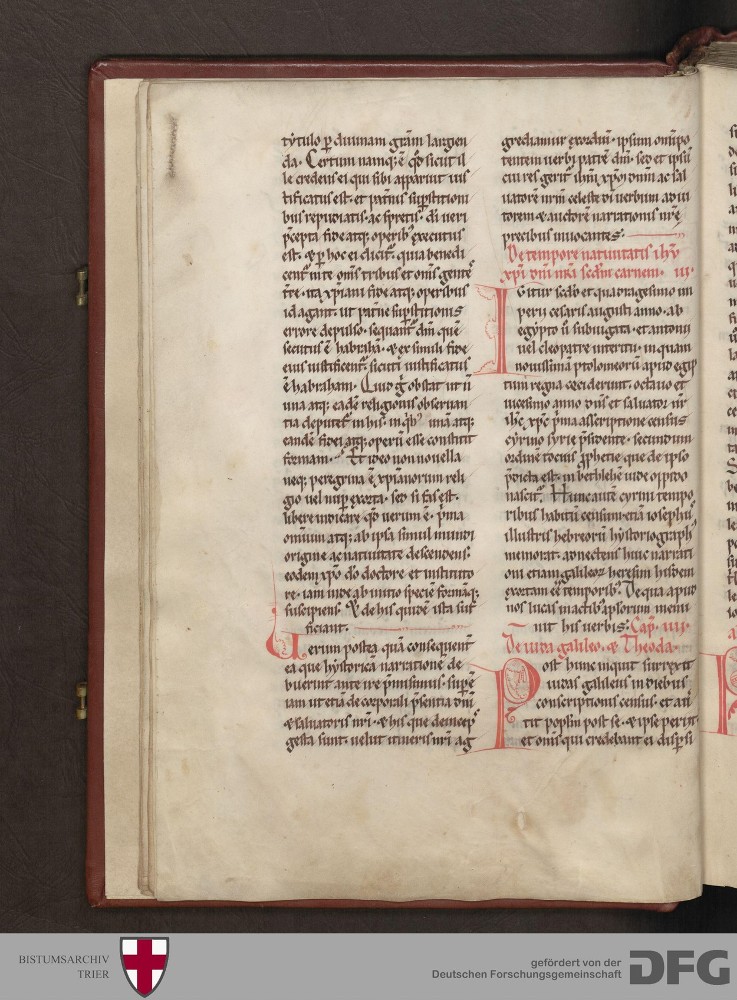 tẏtulo ꝑ diuinam gr̄am largien
da. Certum namq; ē qd̄ sicut il
le credens ei qui sibi apparuit ius
tificatus est. et patriis suꝑstitioni
bus repudiatis. ac spretis. di ueri
p̄cepta fide atq; operib; executus
est. & ꝑ hoc ei dicit̄. quia benedi
cent̄ in te om̄s tribus et om̄s gente᷒
tr̄e. ita xp̄iani fide atq; operibus
id agant. ut patriis suꝑstitionis
errore depulso. sequant̄ dm̄ quē
secutus ē habrahā. & ex simili fide
eius iustificent̄. sicuti iustificatus
ē habraham. Quid g̊ obstat ut ñ
una atq; eadē religionis obseruan
tia deputet̄ in his. in qb; unā atq;
eandē fidei atq; operū esse constitit
formam. Et ideo non nouella
neq; peregrina ē xp̄ianorum reli
gio uel nuꝑ exorta. sed si fas est.
libere indicare qd̄ uerum ē. p̄ma
omnium atq; ab ipsa simul mundi
origine ac natiuitate descendens.
eodem xp̄o do doctore et instituto
re. iam inde ab initio speciē formāq;
suscipiens. & de his quidē ista suf
ficiant.
Uerum postea quā consequent̄
ea que hẏstoricā narratione de
buerint anteire p̄misimus. suꝑē
iam ut etiā de corporali p̄sentia dn̄i
& saluatoris nr̄i. & his que deincep᷒
gesta sunt. uelut itineris nr̄i ag
grediamur exordiū. ipsum omīpo
tentem uerbi patrē dm̄. sed et ipsū
cui res gerit̄ ihm̄ xp̄m dn̄m ac sal
uatorē nr̄m celeste di uerbum adiu
torem & auctorē narrationis nr̄ē
precibus inuocantes.
De tempore natiuitatis ihv̄
xp̄i dn̄i nr̄i scdm̄ carnem. iii.
Igitur scdo et quadragesimo im
perii cesaris augusti anno. ab
egẏpto ū subiugata. et antonii
uel cleopatre interitu. in quam
nouissimā ptolomeorū apud egip
tum regna ceciderunt. octauo et
uicesimo anno dn̄s et saluator nr̄
ih̄c xp̄c p̄ma asscriptione census
cẏrino sẏrie p̄sidente. secundum
ordinē tocius ꝓphetie que de ipso
p̄dicta est. in bethleh̄e iude oppido
nascit̄. Hunc autē cẏrini tempo
ribus habitū censum. etiā iosephus᷒
illustris hebreorū hẏstoriograph᷒
memorat. adnectens huic narrati
oni etiam galileoꝝ heresim hisdem
exortam eē temporib;. De qua apud
nos lucas in actib; apl̄sorum memi
nit his uerbis: Cap. iiii.
De iuda galileo. & Theoda.
Post hunc inquit surrexit
iudas galileus in diebus
conscriptionis census. et au᷒
tit popl̄m post se. & ipse periit.
et om̄s qui credebant ei disꝑsi
BISTUMSARCHIV
TRIER
gefördert von der
Deutschen Forschungsgemeinschaft
DFG